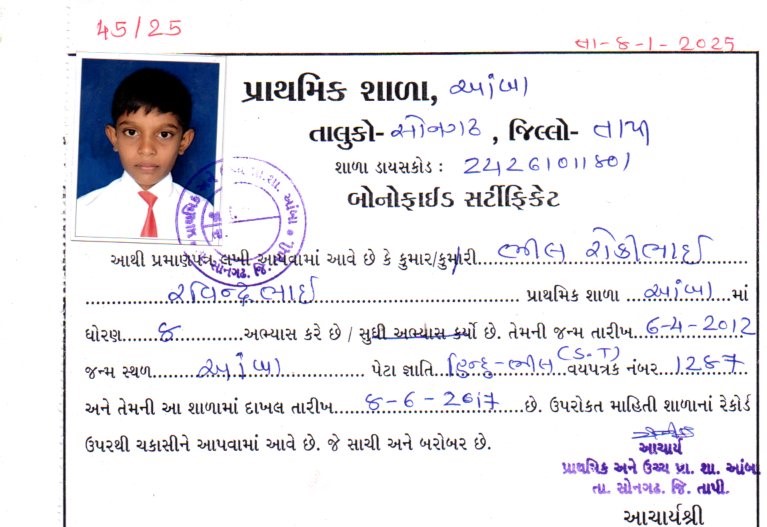 45/25
તા-8-1-2025
પ્રાથમિક શાળા, આંબા
તાલુકો- સોનગઢ, જિલ્લો- તાપી
શાળા ડાયસકોડ : 24261011801
બોનોફાઈડ સર્ટીફિકેટ
આથી પ્રમાણપત્ર લખી આપવામાં આવે છે કે કુમાર/કુમારી ભીલ રોકીભાઈ
રવિન્દ્રભાઈ પ્રાથમિક શાળા આંબા માં
ધોરણ 8 અભ્યાસ કરે છે / સુધી અભ્યાસ કર્યો છે. તેમની જન્મ તારીખ 6-4-2012
જન્મ સ્થળ આંબા પેટા જ્ઞાતિ હિન્દુ-ભીલ (S.T) વયપત્રક નંબર 1287
અને તેમની આ શાળામાં દાખલ તારીખ 8-6-2017 છે. ઉપરોકત માહિતી શાળાનાં રેકોર્ડ
ઉપરથી ચકાસીને આપવામાં આવે છે. જે સાચી અને બરોબર છે.
આચાર્ય
પ્રાથમિક અને ઉચ્ચ પ્રા. શા. આંબા
તા. સોનગઢ. જિ. તાપી.
આચાર્યશ્રી